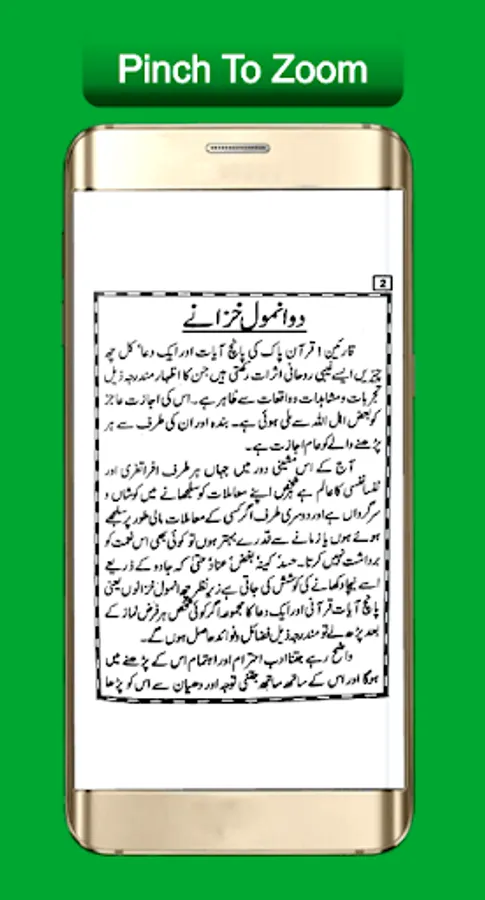 Pinch To Zoom
2
دو انمول خزانے
قارئین! قرآن پاک کی پانچ آیات اور ایک دعا' کل چھ
چیزیں ایسے غیبی روحانی اثرات رکھتی ہیں جن کا اظہار مندرجہ ذیل
تجربات و مشاہدات و واقعات سے ظاہر ہے۔ اس کی اجازت عاجز
کو بعض اہل اللہ سے ملی ہوئی ہے۔ بندہ اور ان کی طرف سے ہر
پڑھنے والے کو عام اجازت ہے۔
آج کے اس مشینی دور میں جہاں ہر طرف افراتفری اور
نفسا نفسی کا عالم ہے ہر شخص اپنے معاملات کو سلجھانے میں کوشاں و
سرگرداں ہے اور دوسری طرف اگر کسی کے معاملات مالی طور پر سلجھے
ہوئے ہوں یا زمانے سے قدرے بہتر ہوں تو کوئی بھی اس نعمت کو
برداشت نہیں کرتا۔ حسد' کینہ' بغض' عناد' حتیٰ کہ جادو کے ذریعے
اسے نیچا دکھانے کی کوشش کی جاتی ہے زیر نظر چھ انمول خزانوں یعنی
پانچ آیات قرآنی اور ایک دعا کا مجموعہ اگر کوئی شخص ہر فرض نماز کے
بعد پڑھ لے تو مندرجہ ذیل فضائل و فوائد حاصل ہوں گے۔
واضح رہے جتنا ادب احترام اور اہتمام اس کے پڑھنے میں
ہوگا اور اس کے ساتھ ساتھ جتنی توجہ اور دھیان سے اس کو پڑھا